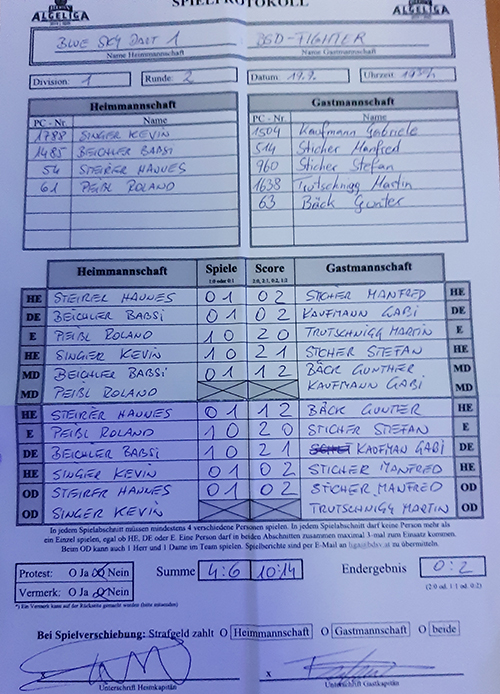 SPIELPROTOKOLL
ALGELIGA ALGELIGA
BLUE SKY DART 1 BSD-FIGHTER
Name Heimmannschaft Name Gastmannschaft
Division: 1 Runde: 2 Datum: 19.9. Uhrzeit:
Heimmannschaft Gastmannschaft
PC - Nr. Name PC - Nr. Name
1788 SINGER KEVIN 1504 Kaufmann Gabriele
1485 BEICHLER BABSI 514 Sticher Manfred
54 STEIRER HANNES 960 Sticher Stefan
61 PEIBL ROLAND 1638 Trutschnigg Martin
63 Bäck Gunter
Heimmannschaft Spiele Score Gastmannschaft
1:0 oder 0:1 2:0, 2:1, 0:2, 1:2
HE STEIRER HANNES 0 1 0 2 STICHER MANFRED HE
DE BEICHLER BABSI 0 1 0 2 KAUFMANN GABI DE
E PEIBL ROLAND 1 0 2 0 TRUTSCHNIGG MARTIN E
HE SINGER KEVIN 1 0 2 1 STICHER STEFAN HE
MD BEICHLER BABSI 0 1 1 2 BÄCK GUNTHER MD
MD PEIBL ROLAND KAUFMANN GABI MD
HE STEIRER HANNES 0 1 1 2 BÄCK GUNTER HE
E PEIBL ROLAND 1 0 2 0 STICHER STEFAN E
DE BEICHLER BABSI 1 0 2 1 KAUFMAN GABI DE
HE SINGER KEVIN 0 1 0 2 STICHER MANFRED HE
OD STEIRER HANNES 0 1 0 2 STICHER MANFRED OD
OD SINGER KEVIN TRUTSCHNIGG MARTIN OD
In jedem Spielabschnitt müssen mindestens 4 verschiedene Personen spielen. In jedem Spielabschnitt darf keine Person mehr als
ein Einzel spielen, egal ob HE, DE oder E. Eine Person darf in beiden Abschnitten zusammen maximal 3-mal zum Einsatz kommen.
Beim OD kann auch 1 Herr und 1 Dame im Team spielen. Spielberichte sind per E-Mail an liga@bdsv.at zu übermitteln.
Protest: O Ja O Nein Summe 4:6 10:14 Endergebnis 0:2
Vermerk: O Ja O Nein (2:0 od. 1:1 od. 0:2)
*) Ein Vermerk kann auf der Rückseite gemacht werden (bitte unterenden)
Bei Spielverschiebung: Strafgeld zahlt O Heimmannschaft O Gastmannschaft O beide
x
Unterschrift Heimkapitän Unterschrift Gastkapitän